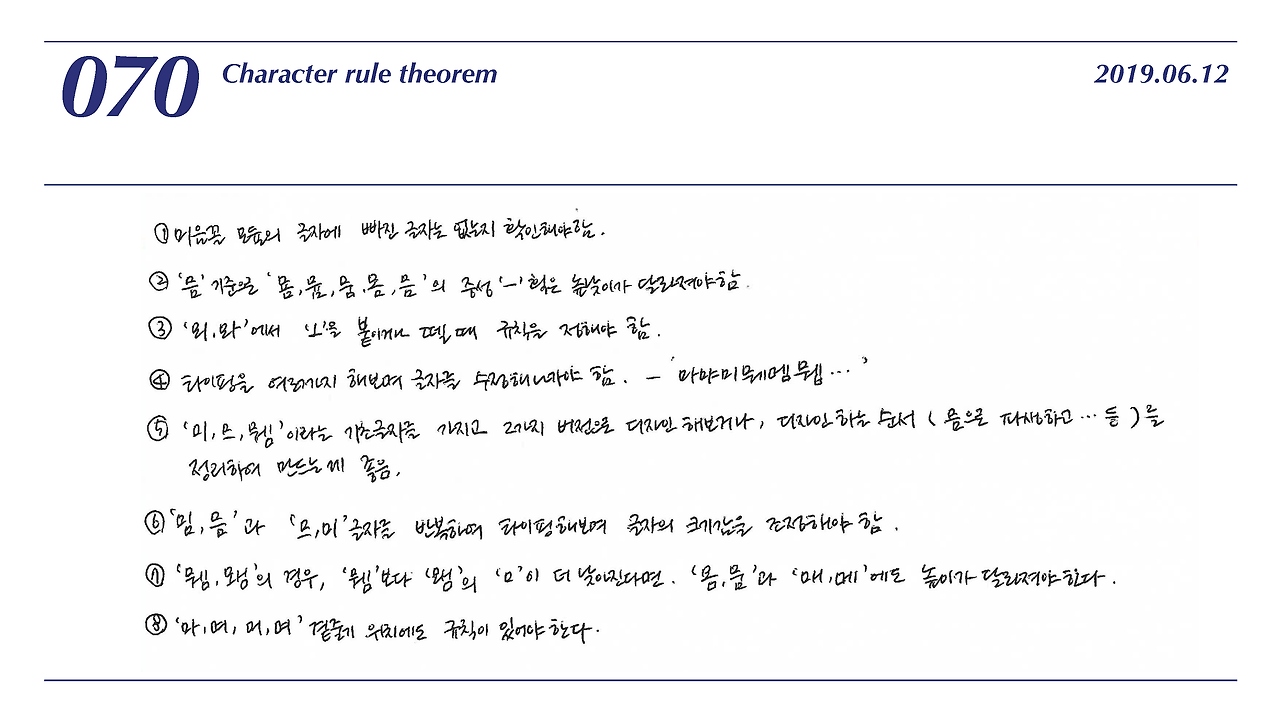 070
Character rule theorem
2019.06.12
① 미음꼴 모듈의 글자에 빠진 글자는 없는지 확인해야함.
② '믐' 기준으로 '몸,뮴,뭄,몸,믐'의 중성 'ㅡ' 획은 높낮이가 달라져야함.
③ '외,와'에서 'ㅗ'를 붙이거나 뗄 때 규칙을 정해야 함.
④ 타이핑을 여러가지 해보며 글자를 수정해나가야 함. – '마야미뭬멤뭽…'
⑤ '미,므,뮘'이라는 기초글자를 가지고 2가지 버전으로 디자인 해보거나, 디자인 하는 순서 ( 믐으로 파생하고 … 등 )를
정리하여 만드는게 좋음.
⑥ '밈,믐'과 '므,미' 글자를 반복하여 타이핑해보며 글자의 크기감을 조정해야 함.
⑦ 의 경우, 보다 의 'ㅁ'이 더 낮아진다면. '몸,뭄'과 '매,메'에도 높이가 달라져야한다.
⑧ '마,며,머,며' 곁줄기 위치에도 규칙이 있어야 한다.